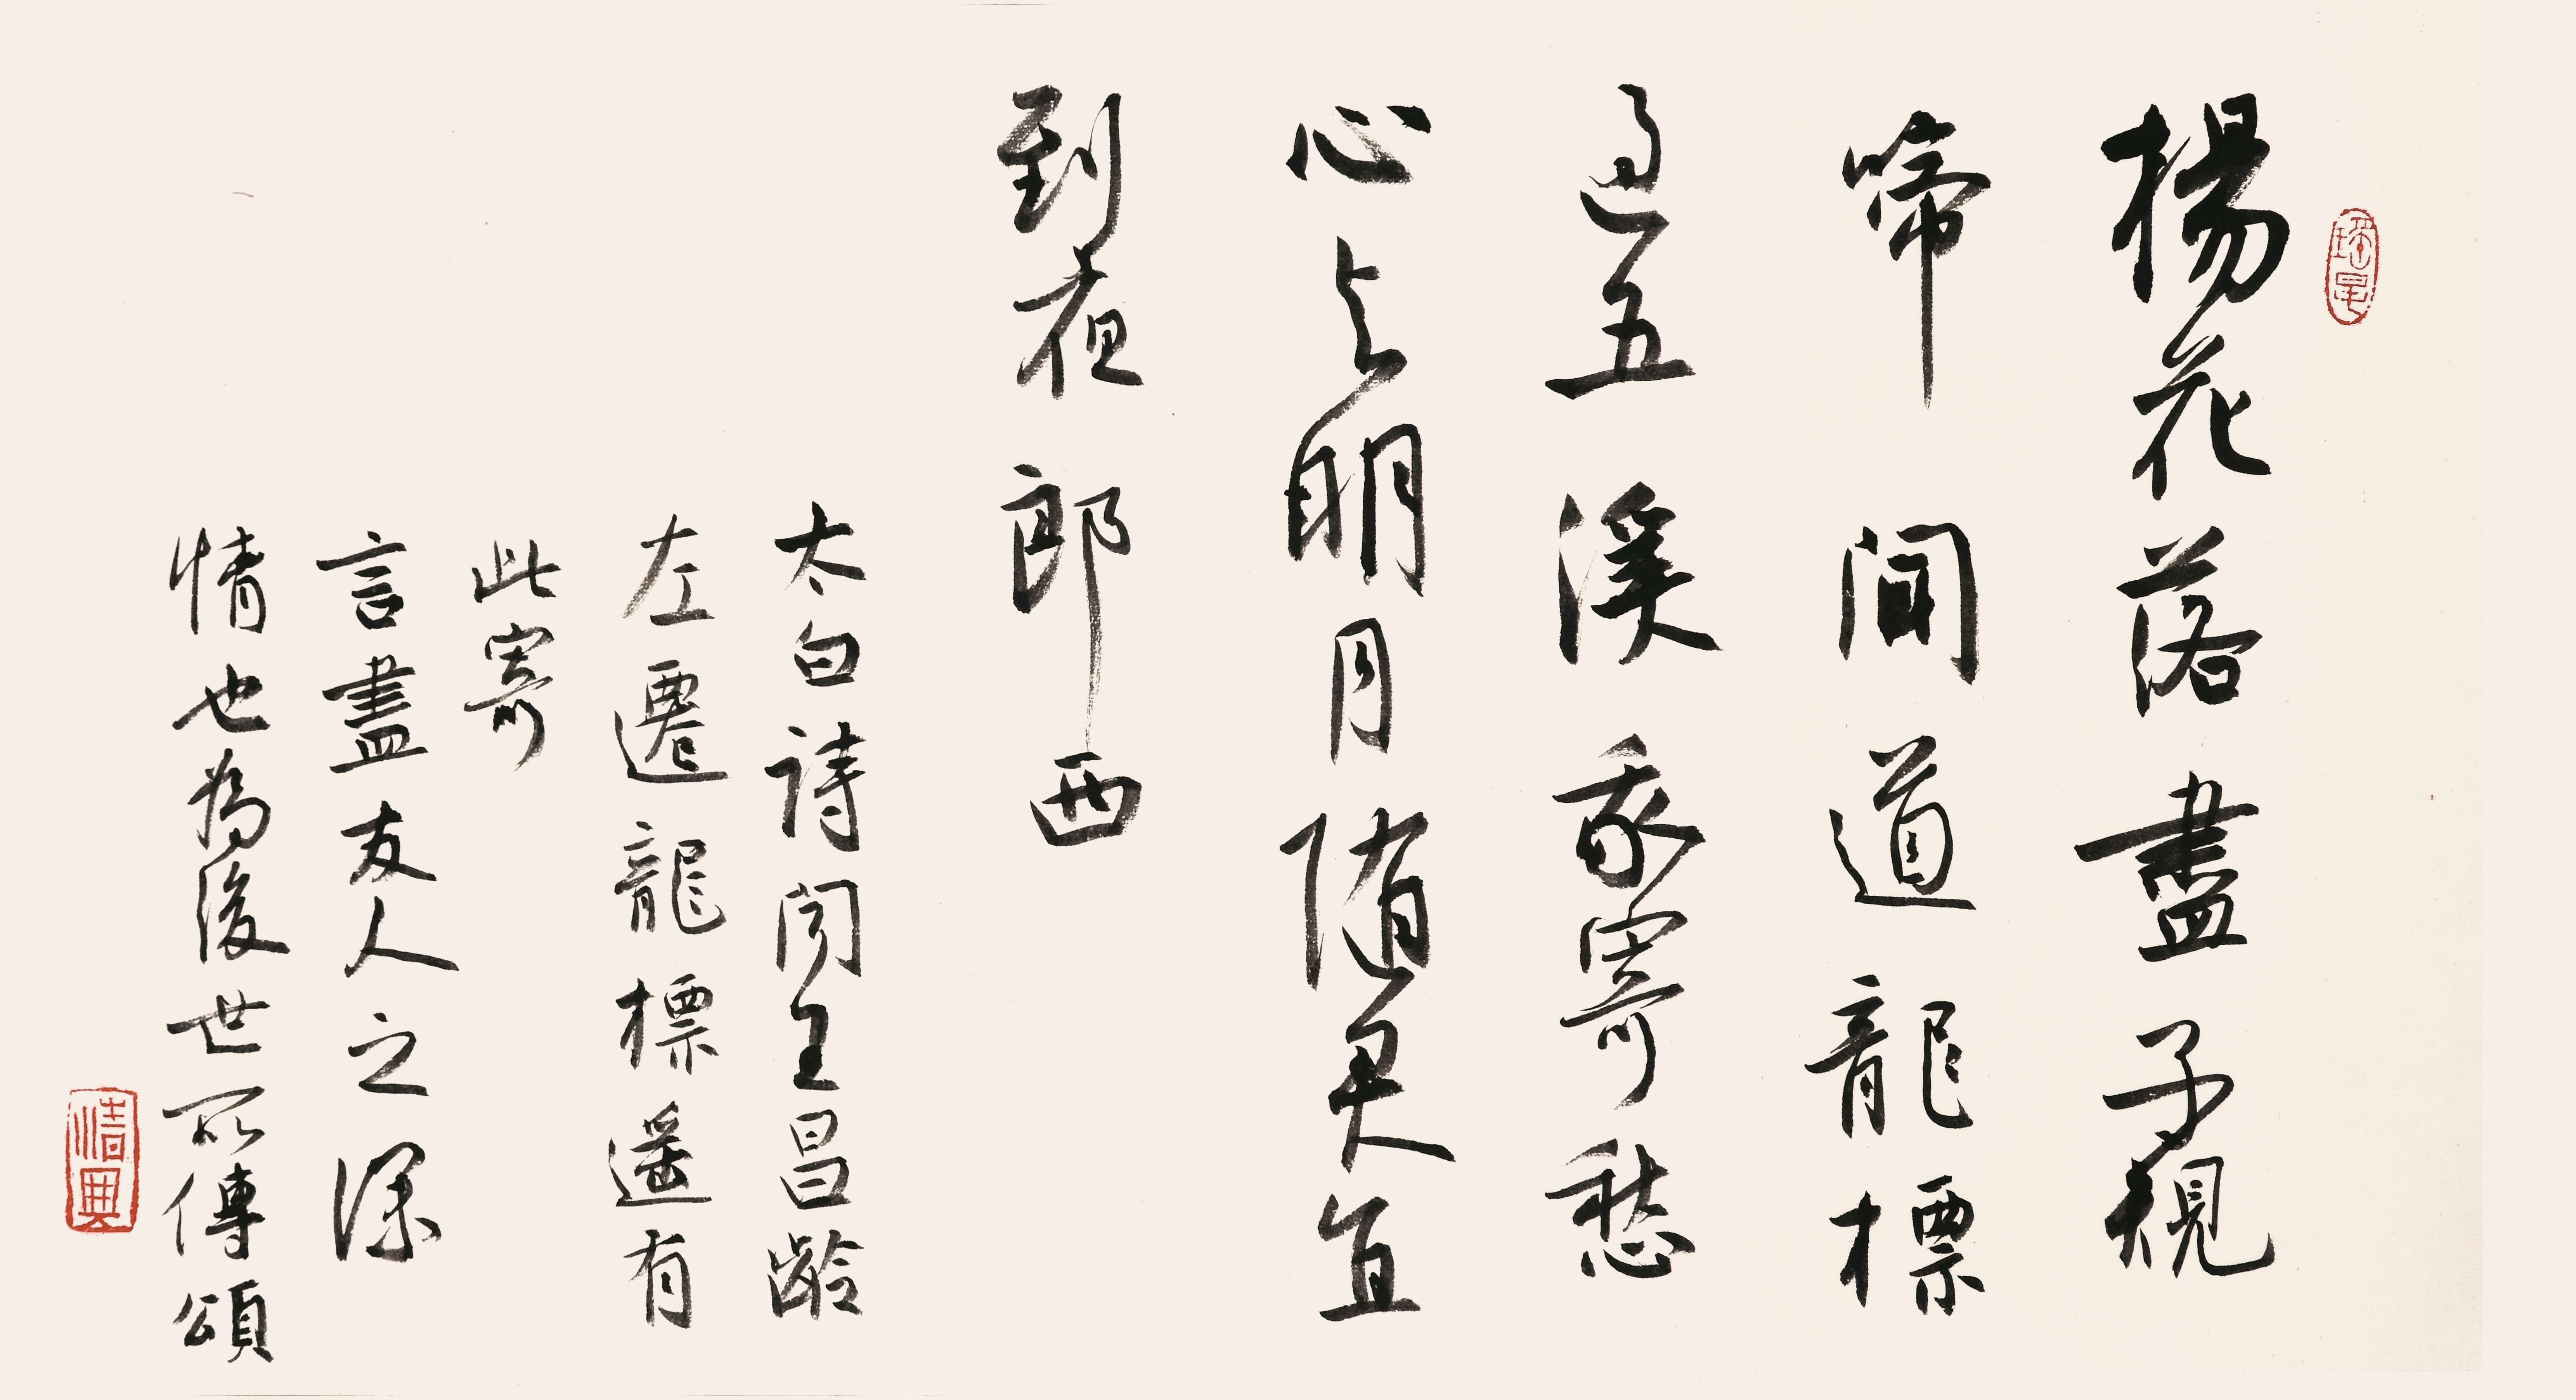 楊花落盡子規
啼聞道龍標
過五溪我寄愁
心与明月随君直
到夜郎西
太白詩聞王昌齡
左遷龍標遥有
此寄
言盡友人之深
情也為後世所傳頌